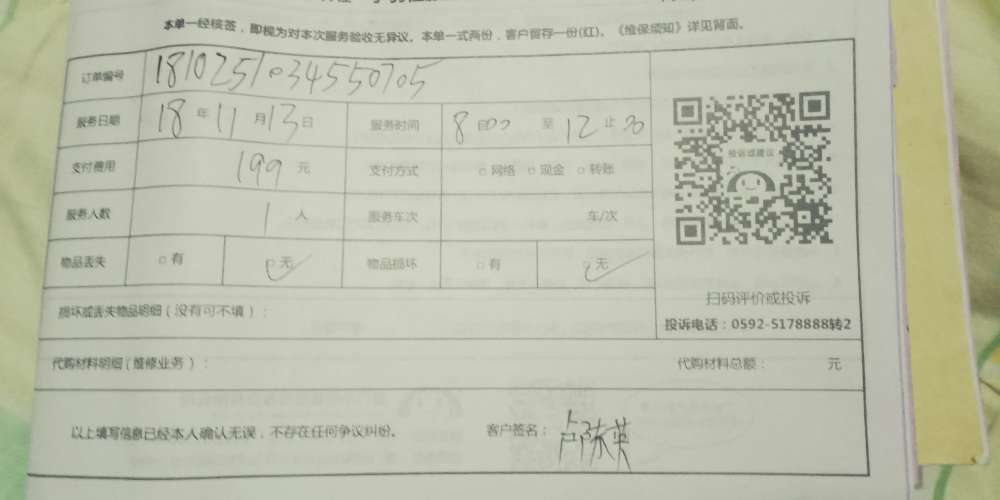 本单一经核签，即视为对本次服务验收无异议。本单一式两份，客户留存一份(红)。《维保须知》详见背面。
订单编号 1810251034550705
服务日期 18 年 11 月 13 日 服务时间 8 自00 至 12 止00
支付费用 199 元 支付方式 □ 网络 □ 现金 □ 转账
服务人数 1 人 服务车次 车/次
物品丢失 □ 有 □ 无 物品损坏 □ 有 □ 无
投诉或建议
扫码评价或投诉
投诉电话：0592-5178888转2
损坏或丢失物品明细（没有可不填）：
代购材料明细（维修业务）： 代购材料总额： 元
以上填写信息已经本人确认无误，不存在任何争议纠纷。 客户签名：卢陈英